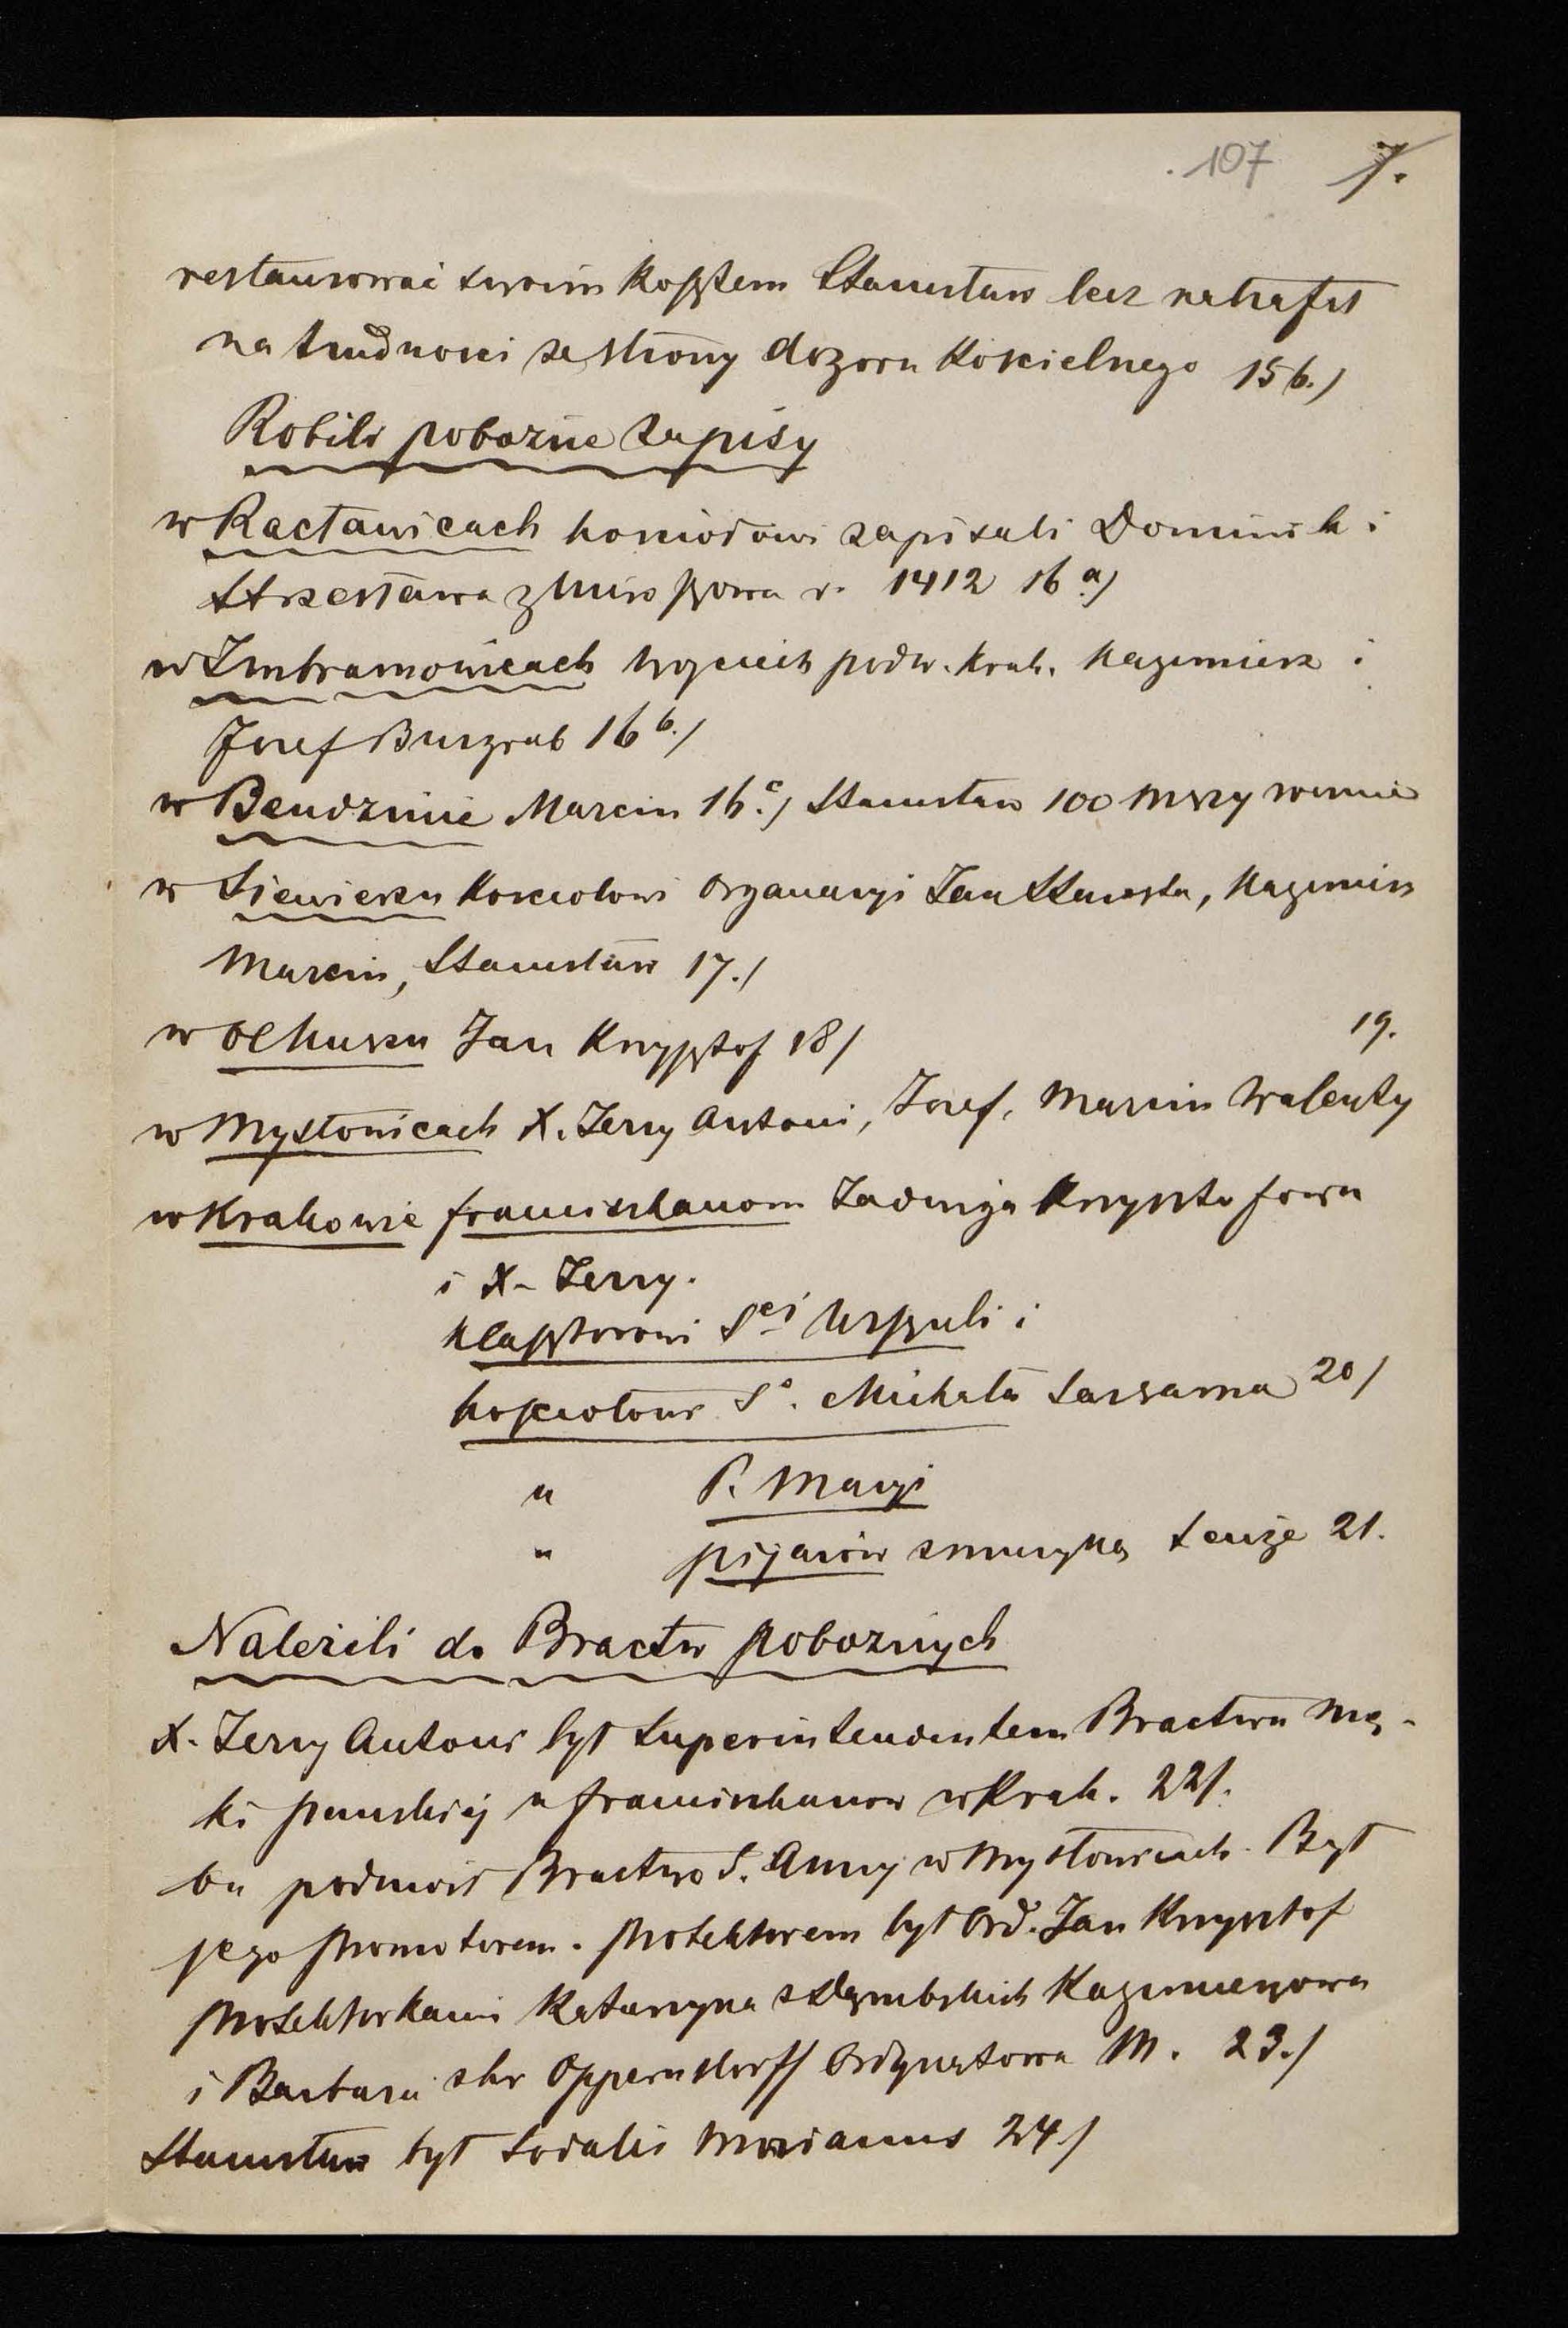 107 7.
restaurować swoim kosztem Stanisław lecz natrafił
na trudności ze strony dozoru Kościelnego 15 b./
Robili pobożne zapisy
w Racławicach kościołowi zapisali Dominik i
Strzesława z Miroszowa r. 1412 16 a/
w Imbramowicach Wojciech podw. Krak. Kazimierz i
Józef Burgrab 16 b./
w Bendzinie Marcin 16 c./ Stanisław 100 Mszy
w Siewierzu Kościołowi Jan Starosta, Kazimirz
Marcin, Stanisław 17./
w Olkuszu Jan Krzysztof 18/
19.
w Mysłowicach X. Jerzy Antoni, Józef, Marcin Walenty
w Krakowie franciszkanom Jadwiga Krzysztofowa
i X. Jerzy.
Klasztorowi S<sup>ej</sup> Urszuli i
kościołowi S<sup>o</sup>. Michała 20/
" P. Maryi
" pijarów z muzyką tenże 21.
Należeli do Bractw pobożnych
X. Jerzy Antoni był Superintendentem Bractwa Mę-
ki pańskiéj u franciszkanow w Krak. 22/.
On podniósł Bractwo S. Anny w Mysłowicach. Był
jego promotorem. Protektorem był Ord. Jan Krzysztof
Protektorkami Katarzyna z Dembskich Kazimierzowa
i Barbara z hr Oppersdorff Ordynatowa M. 23./
Stanisław był Sodalis Marianus 24/